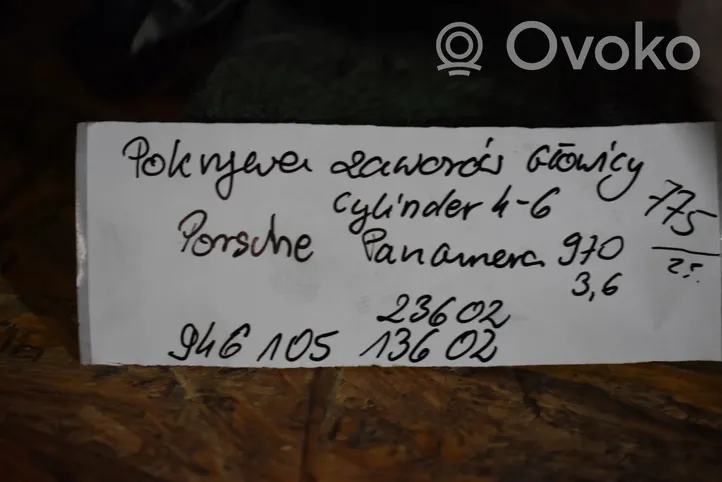 Ovoko
Pokrywa zaworów Głowicy
cylinder 4-6
Porsche Panamera 970
3,6
775
23602
946 105 13602